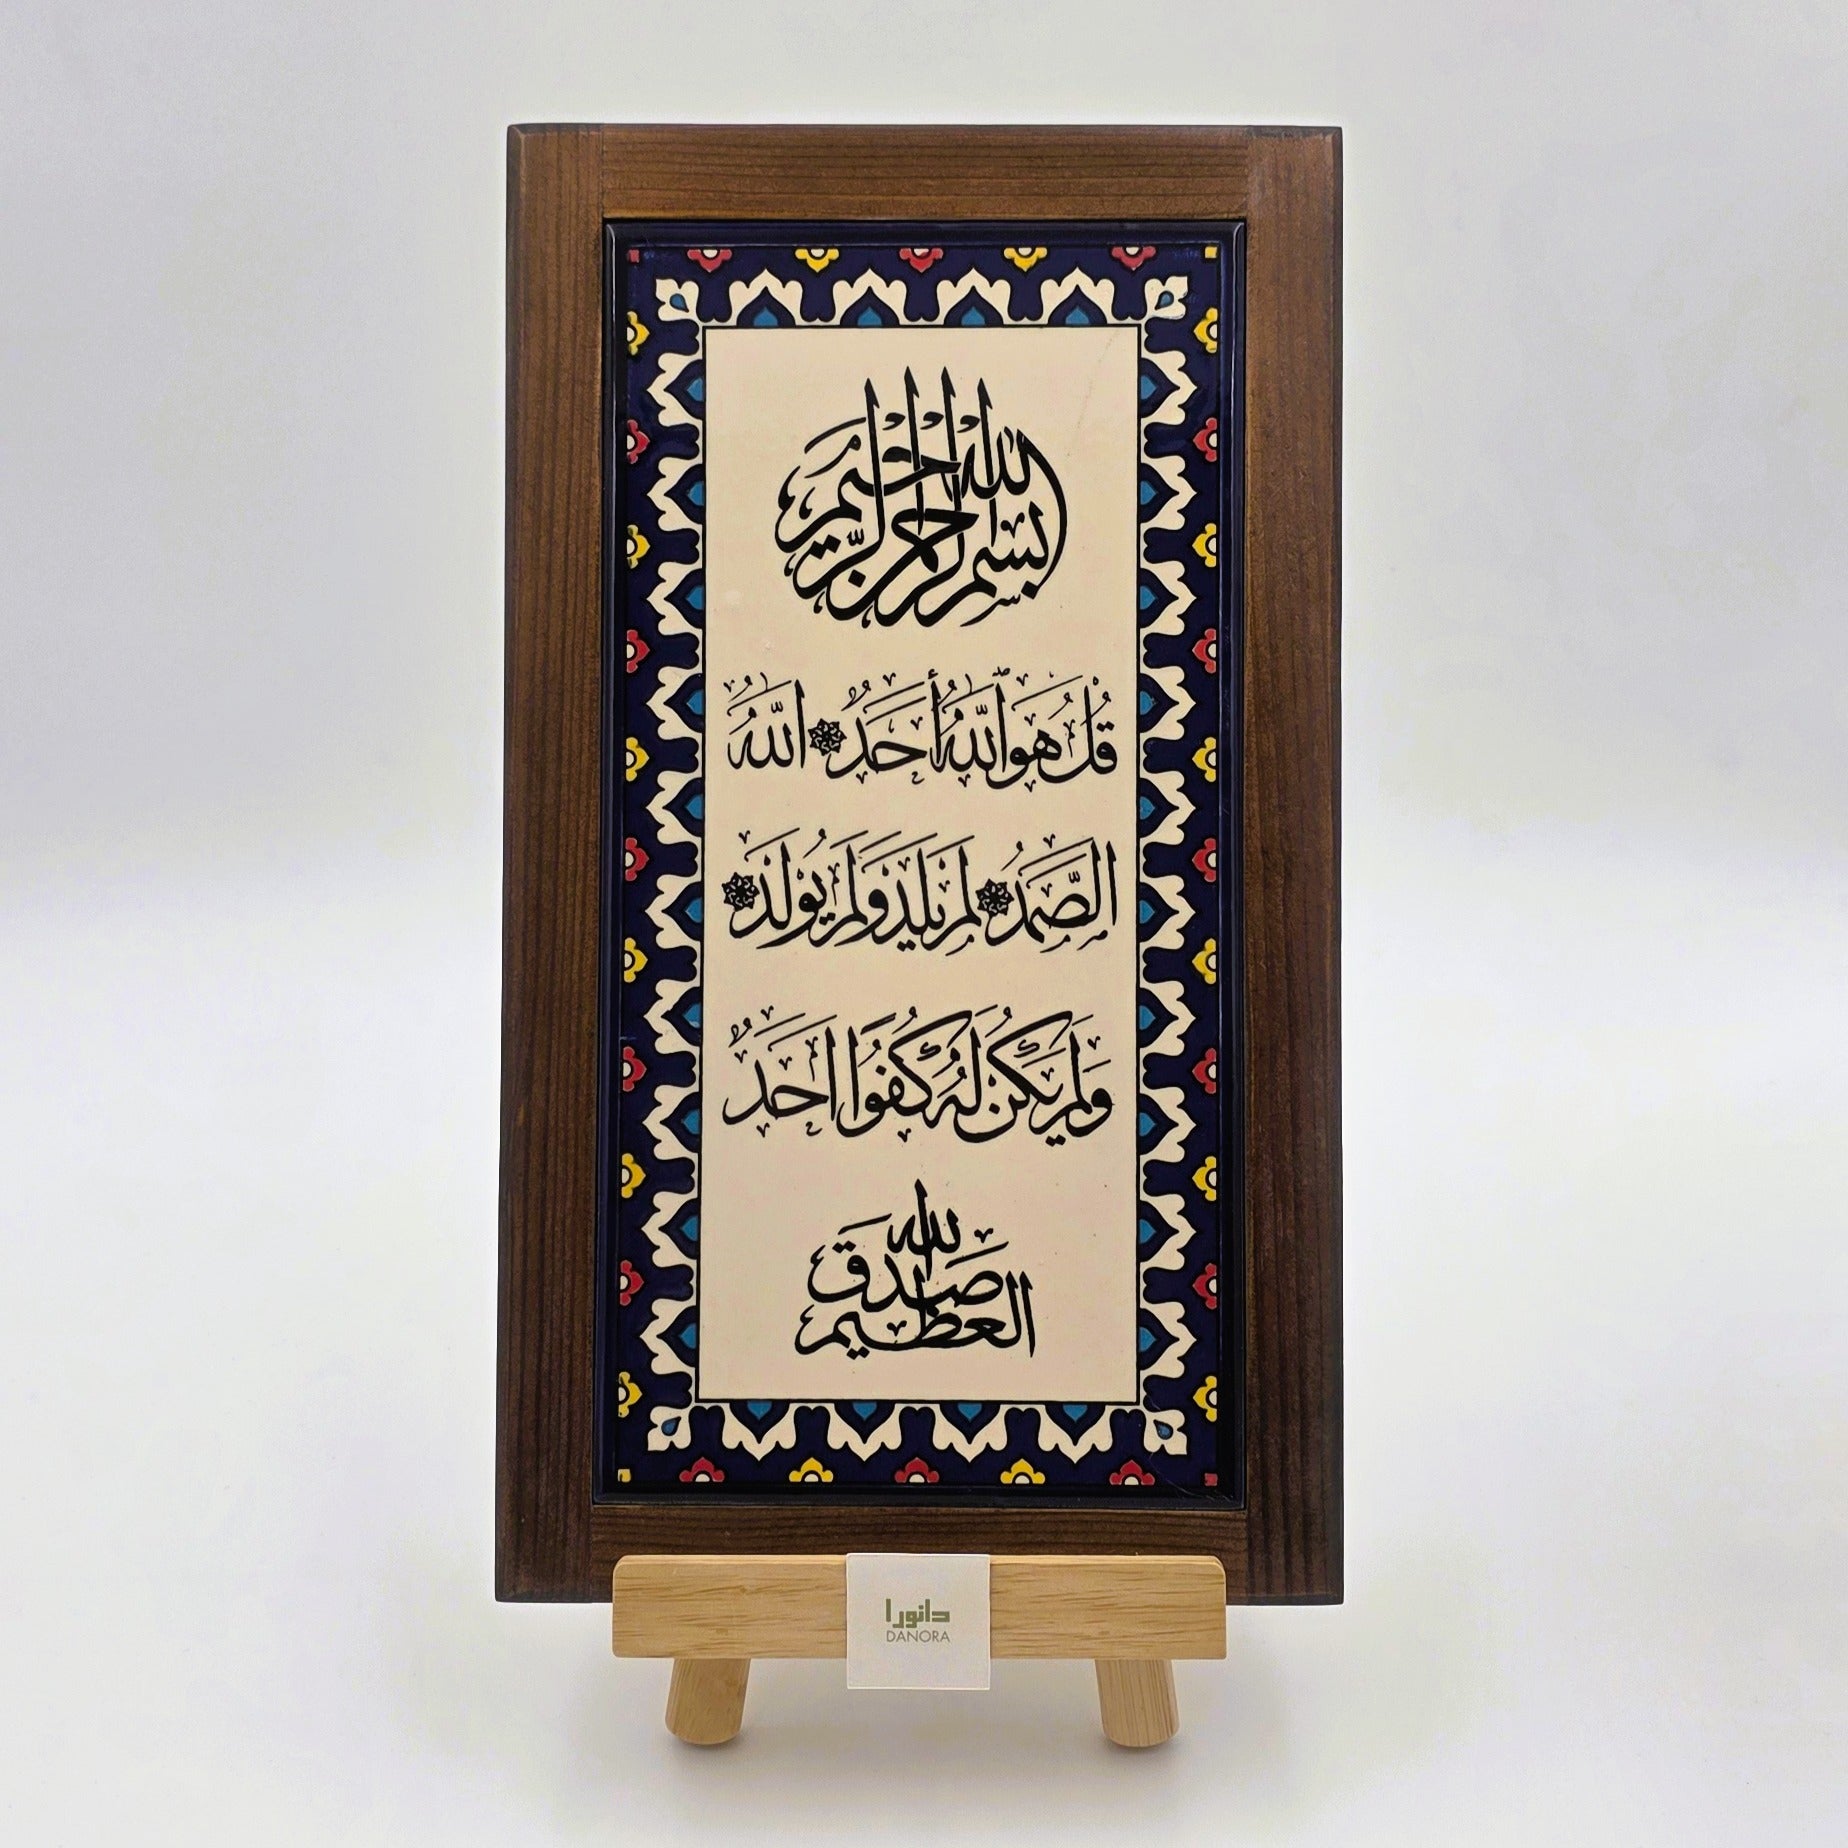 بسم الله الرحمن الرحيم
قُلْ هُوَ ٱللَّهُ أَحَدٌ ۞ اللَّهُ
الصَّمَدُ ۞ لَمْ يَلِدْ وَلَمْ يُولَدْ ۞
وَلَمْ يَكُنْ لَهُ كُفُوًا أَحَدٌ
صدق الله العظيم
دانورا
DANORA